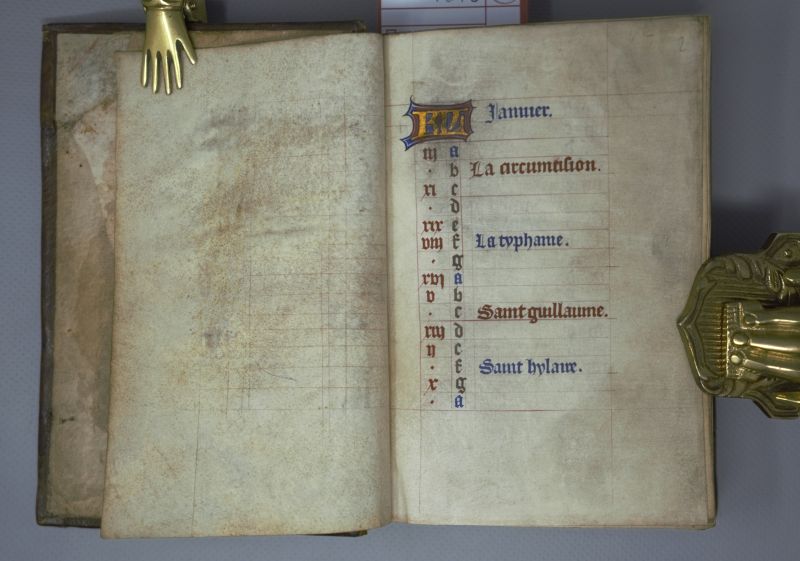 KL Januier.
iij a
. b La circumcision.
xi c
. d
xix e
viij f La typhaine.
. g
xvj a
v b
. c Saint guillaume.
xiij d
ij e
. f Saint hylaire.
x g
. a
2